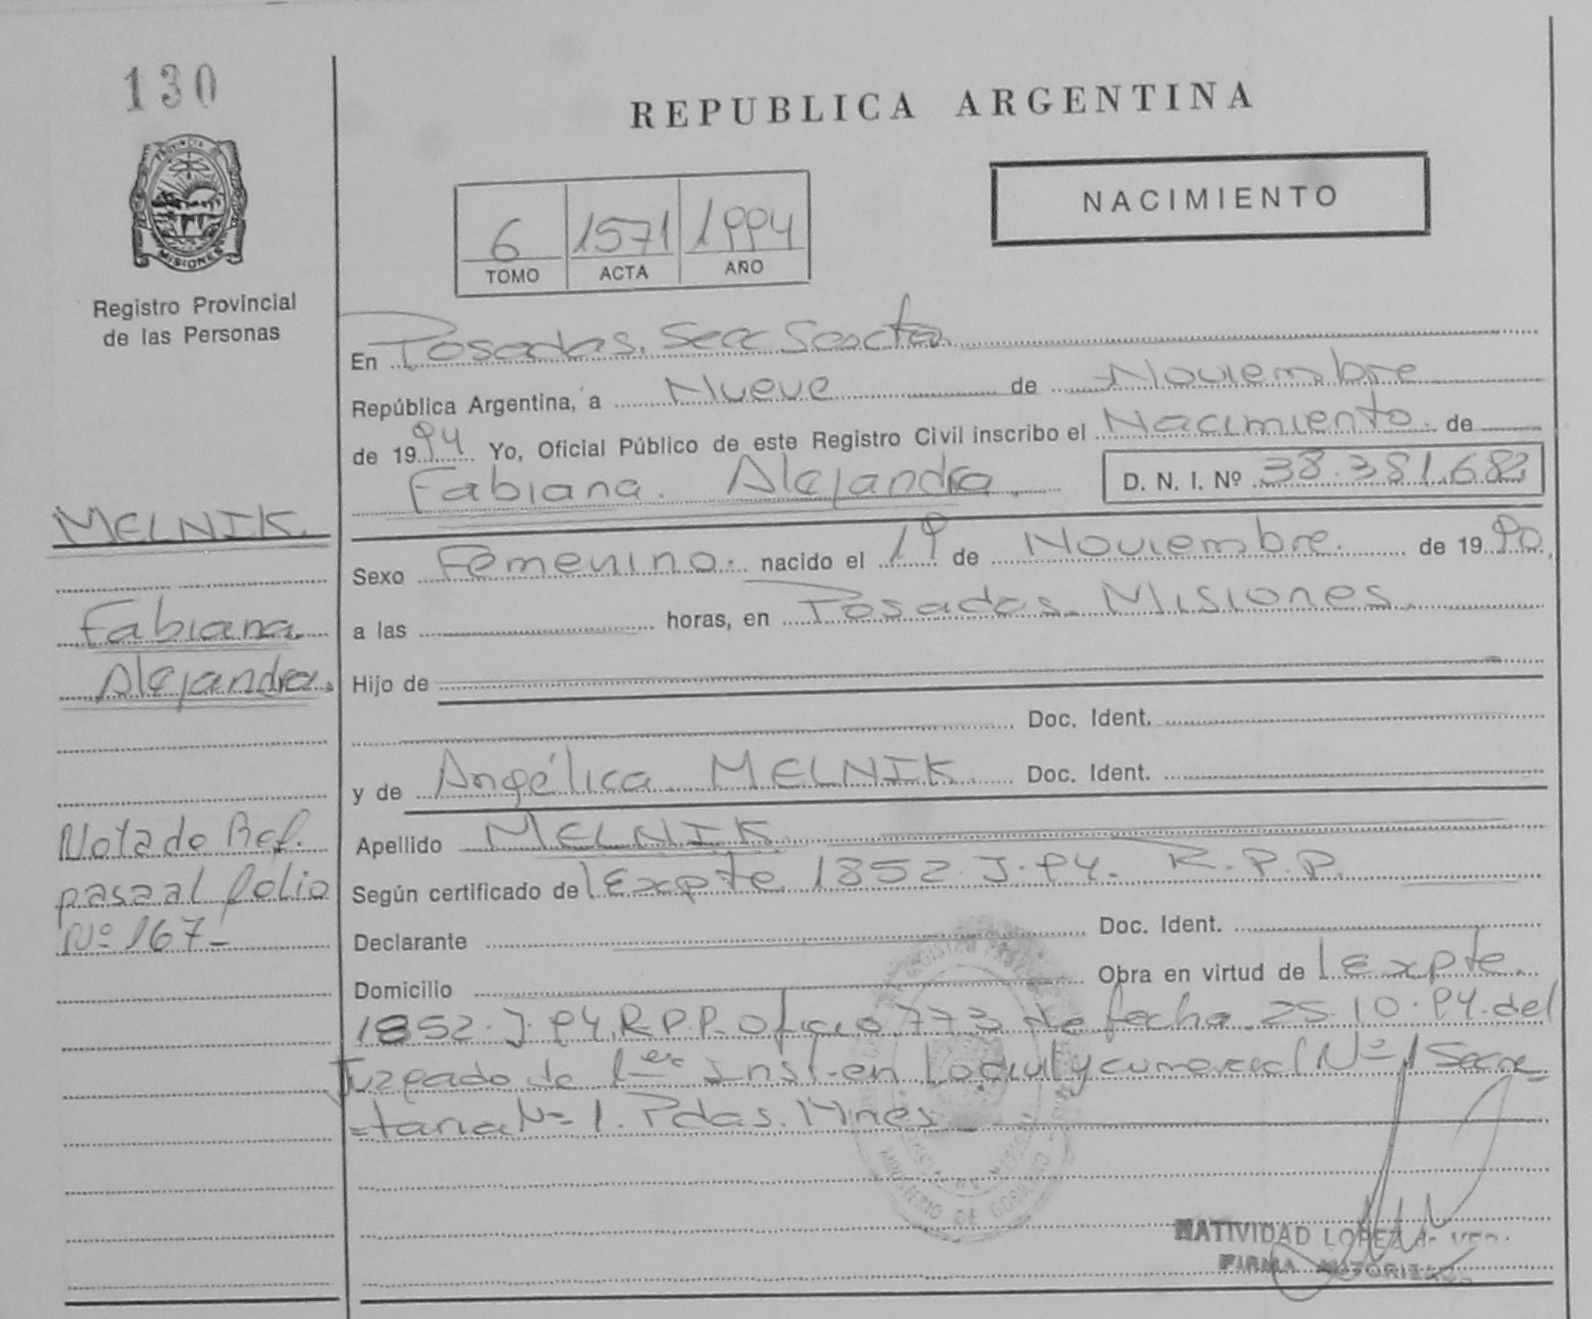 130
REPUBLICA ARGENTINA
NACIMIENTO
PROVINCIA DE
MISIONES
6 1571 1994
TOMO ACTA AÑO
Registro Provincial
de las Personas
En Posadas. Sec Sexcta
República Argentina, a Nueve de Noviembre
de 1994 Yo, Oficial Público de este Registro Civil inscribo el Nacimiento. de
Fabiana. Alejandra D. N. I. Nº 38.381.682
MELNIK.
Fabiana
Alejandra.
Sexo Femenino. nacido el 19 de Noviembre. de 1990,
a las horas, en Posadas. Misiones.
Hijo de
Doc. Ident.
y de Angélica MELNIK Doc. Ident.
Apellido MELNIK
Según certificado de Expte 1852. J. 94. R.P.P.
Nota de Ref.
pasa al folio
Nº 167-
Declarante Doc. Ident.
Domicilio Obra en virtud de Expte.
1852. J. 94. R.P.P. Oficio 773 de fecha 25.10.94. del
Juzgado de 1era Inst. en lo civil y comercial Nº 1 Secre
=taria Nº 1. Pdas. Mnes
MINISTERIO DE GOBIERNO
NATIVIDAD LOPEZ
FIRMA AUTORIZADA